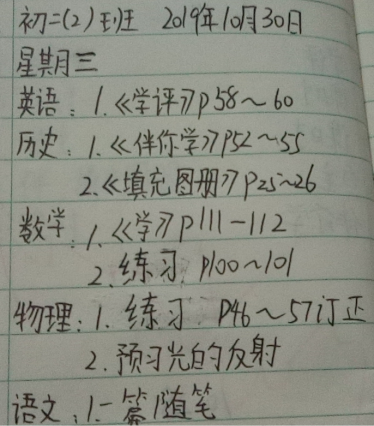 初二(2)班 2019年10月30日
星期三
英语：1.《学评》P58～60
历史：1.《伴你学》P52～55
2.《填充图册》P25～26
数学：1.《学》P111-112
2.练习：P100～101
物理：1.练习：P46～57订正
2.预习光的反射
语文：1.一篇随笔